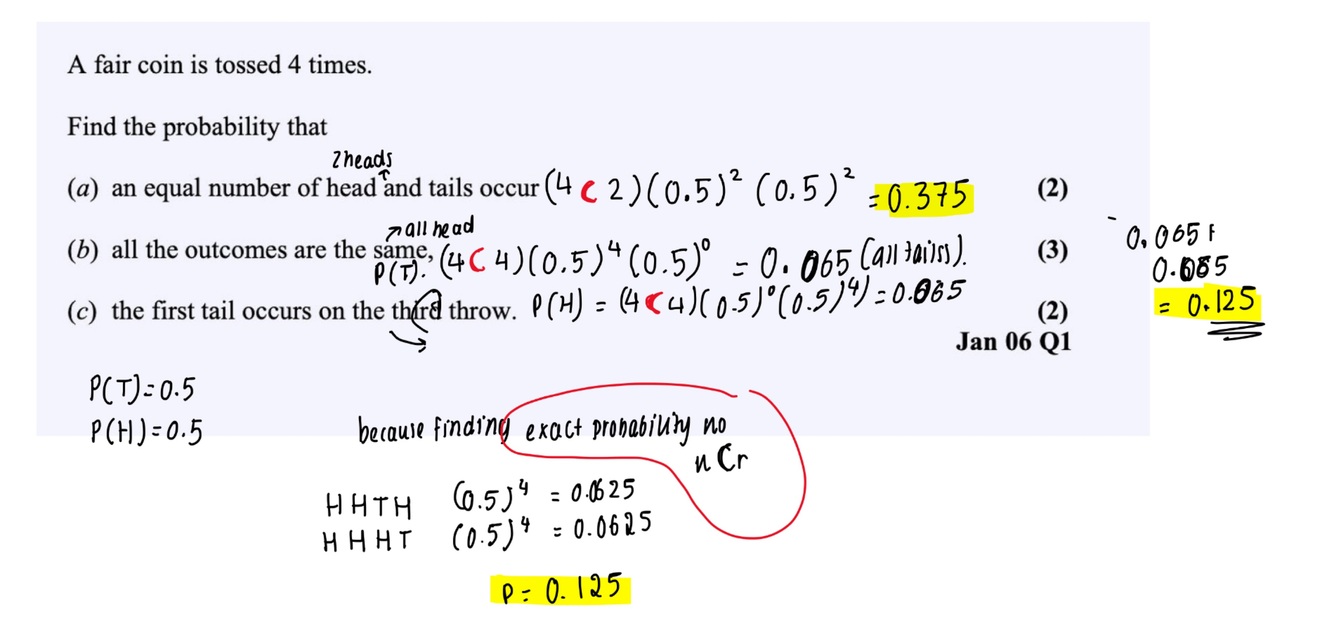 A fair coin is tossed 4 times.
Find the probability that
2 heads
(a) an equal number of head and tails occur (4 C 2)(0.5)² (0.5)² = 0.375 (2)
↗ all head
(b) all the outcomes are the same, (4 C 4)(0.5)⁴(0.5)⁰ = 0.065 (all tails). (3)
P(T).
(c) the first tail occurs on the third throw. P(H) = (4 C 4)(0.5)⁰(0.5)⁴) = 0.065 (2)
Jan 06 Q1
0.065 +
0.065
= 0.125
P(T) = 0.5
P(H) = 0.5
because finding exact probability no
nCr
HHTH (0.5)⁴ = 0.0625
HHHT (0.5)⁴ = 0.0625
P = 0.125